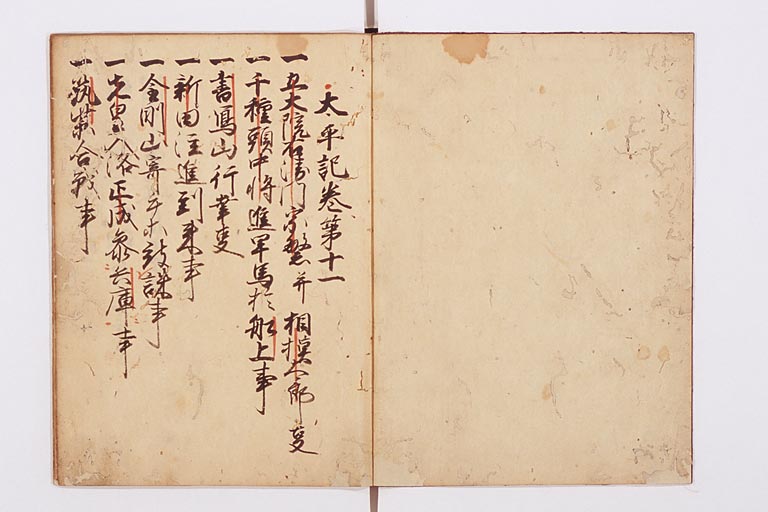 太平記巻第十一
一五大院右衛門宗繁并相摸太郎叓
一千種頭中将進早馬於舩上事
一書寫山行幸叓
一新田注進到来事
一金剛山寄手等被誅事
一先皇入洛正成参兵庫事
一筑紫合戦事